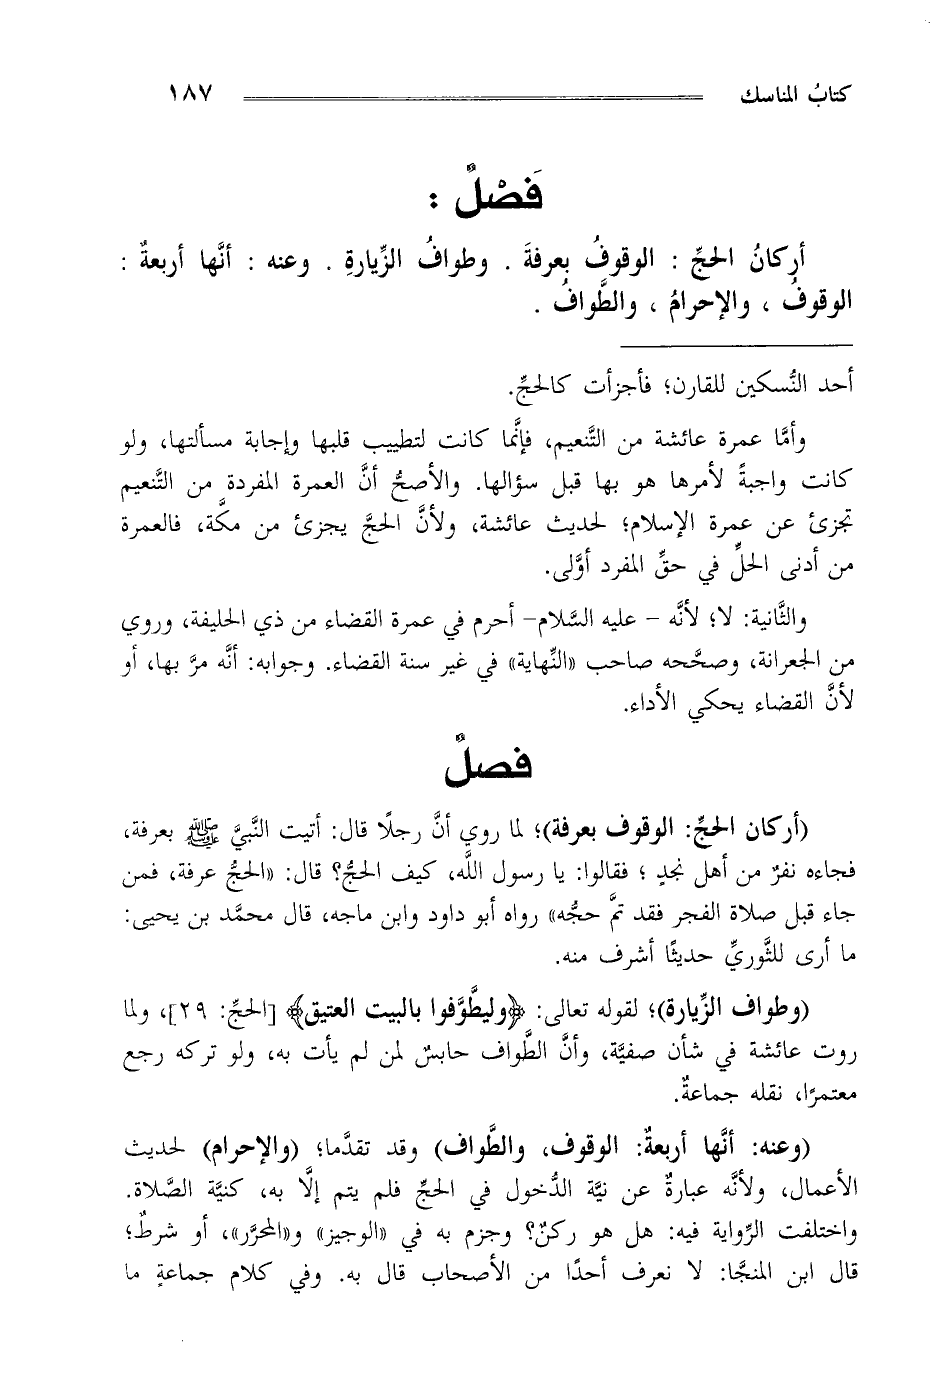 كتابُ المناسك ١٨٧
فَصْلٌ :
أركانُ الحجِّ : الوقوفُ بعرفةَ . وطوافُ الزِّيارةِ . وعنه : أنَّها أربعةٌ :
الوقوفُ ، والإحرامُ ، والطَّوافُ .
أحد النُّسكين للقارن؛ فأجزأت كالحجِّ.
وأمَّا عمرة عائشة من التَّنعيم، فإنَّما كانت لتطييب قلبها وإجابة مسألتها، ولو
كانت واجبةً لأمرها هو بها قبل سؤالها. والأصحُّ أنَّ العمرة المفردة من التَّنعيم
تجزئ عن عمرة الإسلام؛ لحديث عائشة، ولأنَّ الحجَّ يجزئ من مكَّة، فالعمرة
من أدنى الحلِّ في حقِّ المفرد أوَّلى.
والثَّانية: لا؛ لأنَّه – عليه السَّلام– أحرم في عمرة القضاء من ذي الحليفة، وروي
من الجعرانة، وصحَّحه صاحب «النِّهاية» في غير سنة القضاء. وجوابه: أنَّه مرَّ بها، أو
لأنَّ القضاء يحكي الأداء.
فصلٌ
(أركان الحجِّ: الوقوف بعرفة)؛ لما روي أنَّ رجلًا قال: أتيت النَّبيَّ ﷺ بعرفة،
فجاءه نفرٌ من أهل نجدٍ ؛ فقالوا: يا رسول اللَّه، كيف الحجُّ؟ قال: «الحجُّ عرفة، فمن
جاء قبل صلاة الفجر فقد تمَّ حجُّه» رواه أبو داود وابن ماجه، قال محمَّد بن يحيى:
ما أرى للثَّوريِّ حديثًا أشرف منه.
(وطواف الزِّيارة)؛ لقوله تعالى: ﴿وليطَّوَّفوا بالبيت العتيق﴾ [الحجِّ: ٢٩]، ولما
روت عائشة في شأن صفيَّة، وأنَّ الطَّواف حابسٌ لمن لم يأت به، ولو تركه رجع
معتمرًا، نقله جماعةٌ.
(وعنه: أنَّها أربعةٌ: الوقوف، والطَّواف) وقد تقدَّما؛ (والإحرام) لحديث
الأعمال، ولأنَّه عبارةٌ عن نيَّة الدُّخول في الحجِّ فلم يتم إلَّا به، كنيَّة الصَّلاة.
واختلفت الرِّواية فيه: هل هو ركنٌ؟ وجزم به في «الوجيز» و«المحرَّر»، أو شرطٌ؛
قال ابن المنجَّا: لا نعرف أحدًا من الأصحاب قال به. وفي كلام جماعةٍ ما